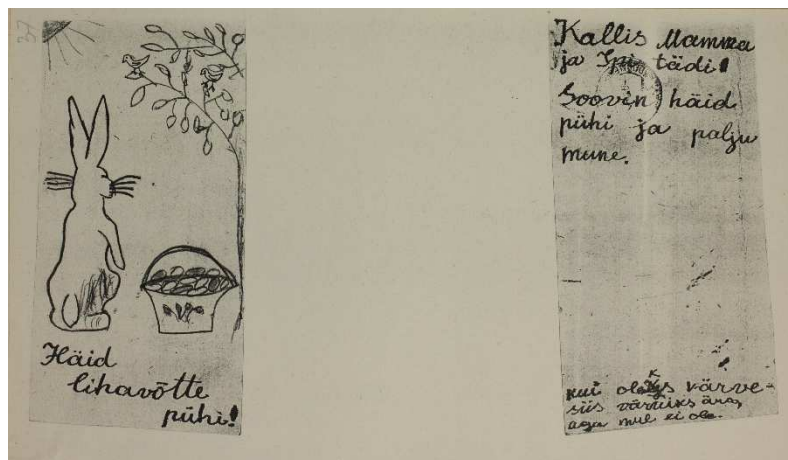 Häid
lihavõtte
pühi!
Kallis Mamma
ja Ipi tädi!
Soovin häid
pühi ja palju
mune.
kui oleks värve-
siis värviks ära,
aga mul ei ole.